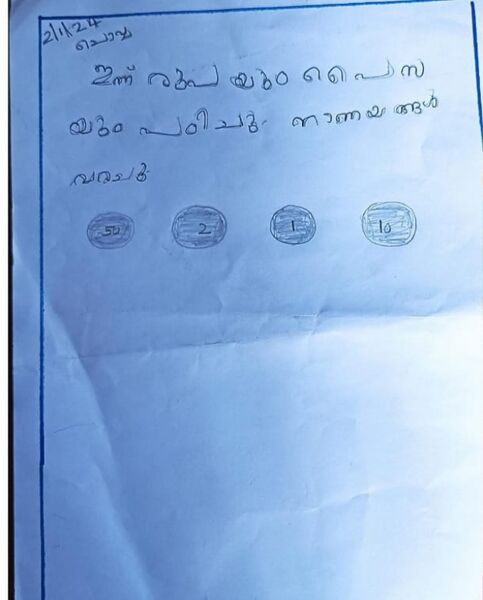 2/1/24
ചൊവ്വ
ഇന്ന് രൂപ യും പൈസ
യും പഠിച്ചു. നാണയങ്ങൾ
വരച്ചു
50 2 1 10